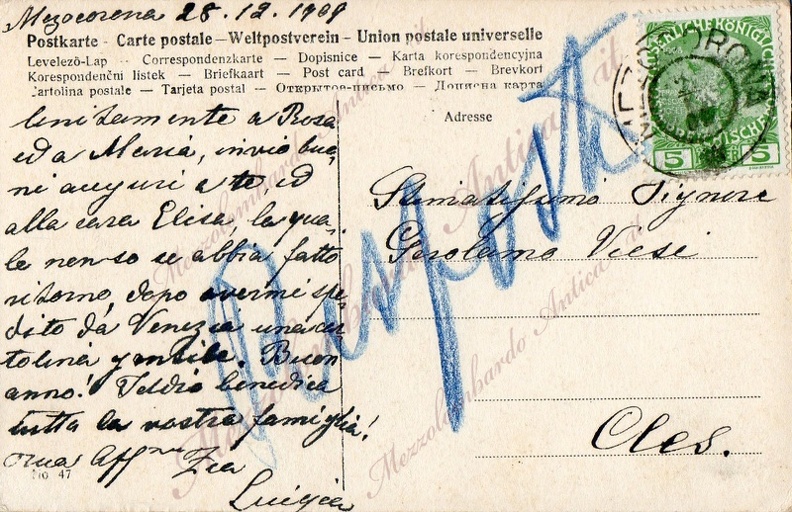 Mezocorona 28.12.1909
Postkarte - Carte postale - Weltpostverein - Union postale universelle
Levelező-Lap — Correspondenzkarte — Dopisnice — Karta korespondencyjna
Korespondenční lístek — Briefkaart — Post card — Brefkort — Brevkort
Cartolina postale — Tarjeta postal — Открытое-письмо — Дописна карта
Unitamente a Rosa
ed a Maria, invio buo-
ni auguri a te, ed
alla cara Elisa, la qua-
le non so se abbia fatto
ritorno, dopo avermi spe-
dito da Venezia una car-
tolina gentile. Buon
anno! Iddio benedica
tutta la vostra famiglia!
Zia
Luigia
No. 47
Adresse
Stimatissimo Signore
Gerolamo Viesi
Cles.
5 5
Mezzolombardo Antica .it
Mezzolombardo Antica .it
Mezzolombardo Antica .it